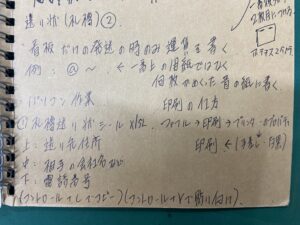 送り状(札幌)②.
看板だけの発送の時のみ運賃も書く
例:@〜 ←一番上の用紙ではなく
個数がめくった青の紙に書く
パソコン作業 印刷の仕方
①札幌送り状シール xlsx. ファイル→印刷→プリンターのプロパティ
上:送り先住所 印刷←(手差し・
中:相手の会社名
下:電話番号
(コントロール+Cでコピー)(コントロール+Vで貼り付け)